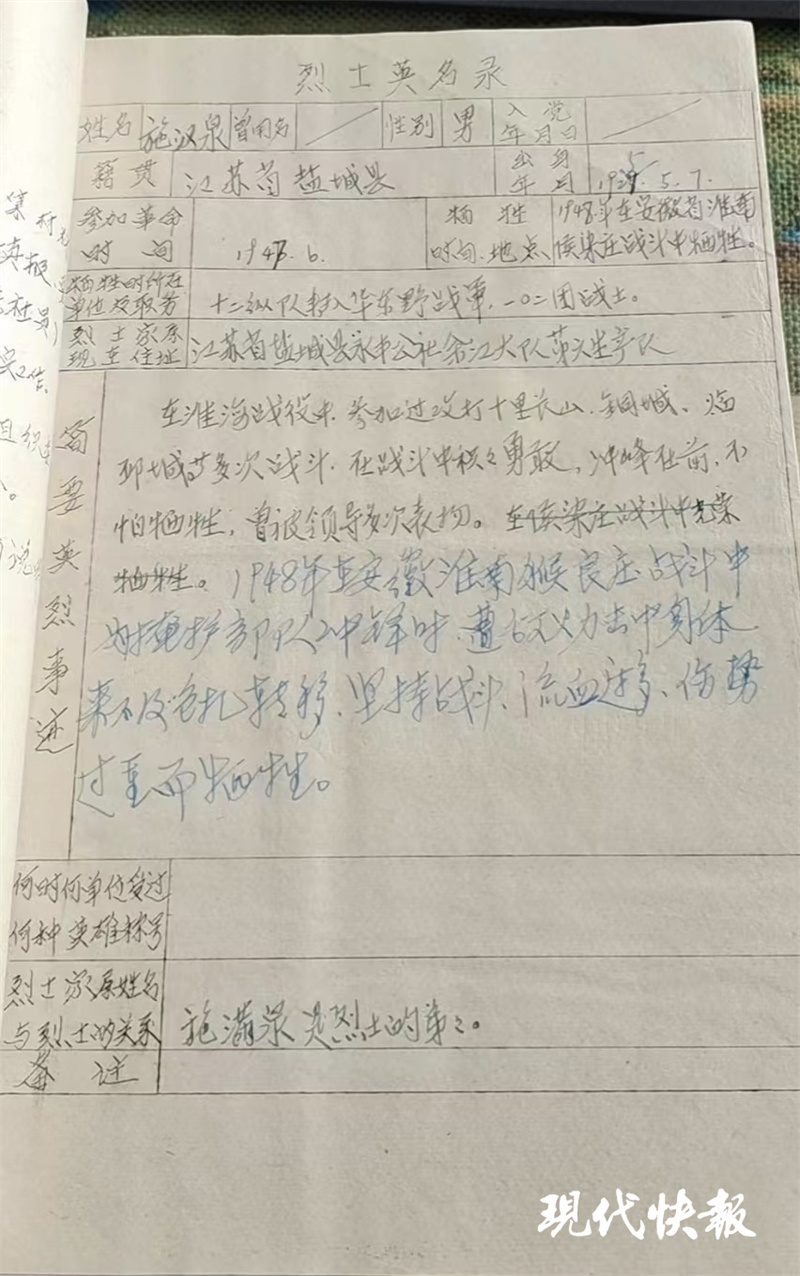 烈士英名录
姓名 施汉泉 曾用名 性别 男 入党
年月日
籍贯 江苏省盐城县 出身
年月 5.7.
参加革命
时间 6. 牺牲
时间、地点 1948年在安徽省淮南
侯梁庄战斗中牺牲。
牺牲时所在
单位及职务 十二纵队 华东野战军，一〇二团战士。
烈士家属
现在住址 江苏省盐城县永丰公社 大队 生产队
简要英烈事迹
在淮海战役中，参加过攻打十里长山、铜城、
等多次战斗，在战斗中积々勇敢，冲峰在前，不
怕牺牲，曾被领导多次表扬。在侯梁庄战斗中光荣
牺牲。1948年在安徽淮南猴良庄战斗中
掩护部队冲锋时、遭敌火力击中身体
来不及包扎转移、坚持战斗、流血过多、伤势
过重而牺牲。
何时何单位受过
何种英雄称号
烈士家属姓名
与烈士的关系 施满泉是烈士的弟々。
备注
现代快报